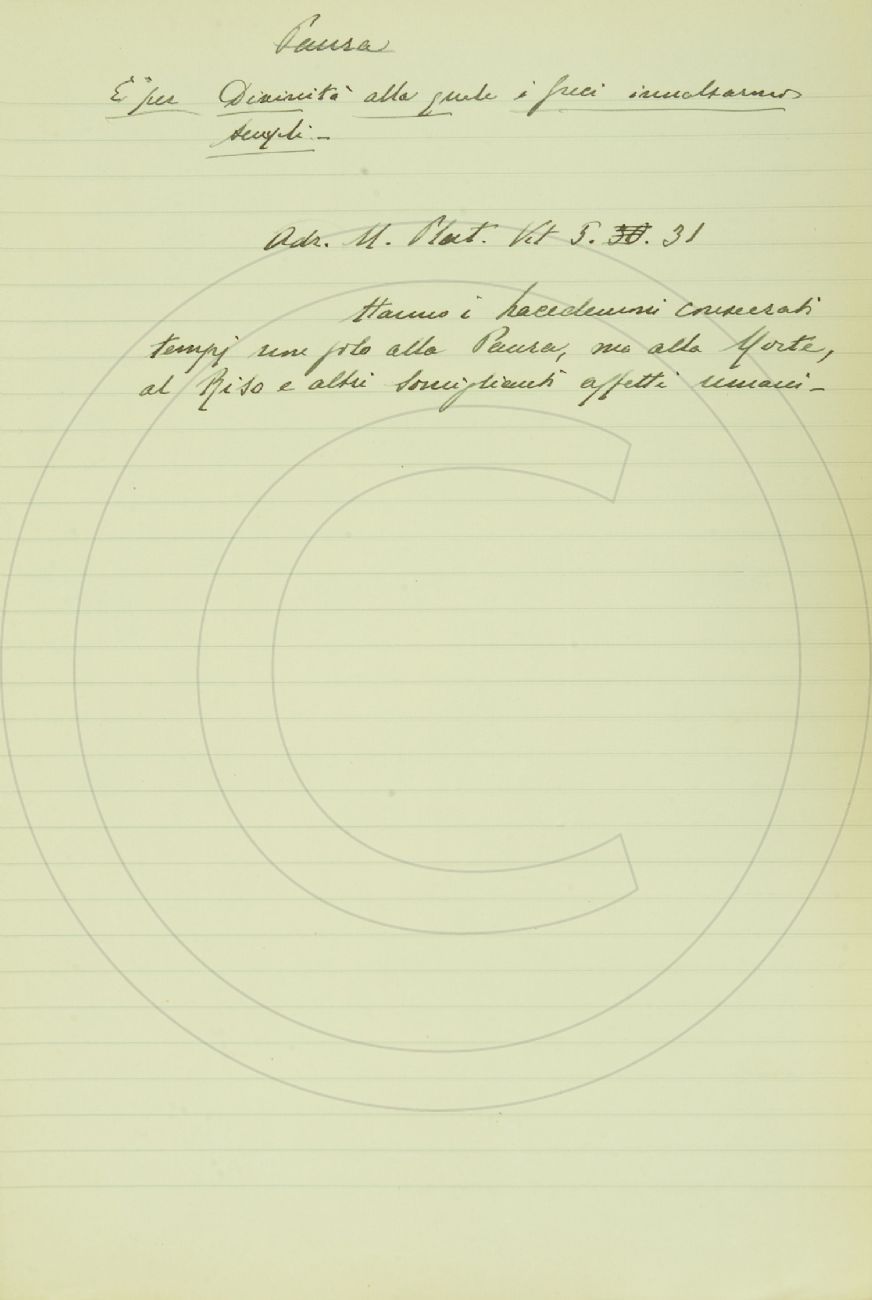 Paura
È per Divinità alla quale i Greci innalzarono
templi. -
Adr. M. Plut. Vit 5. 30. 31
Hanno i Lacedemoni consecrati
tempj non solo alla Paura, ma alla Morte,
al Riso e altri somiglianti affetti umani -